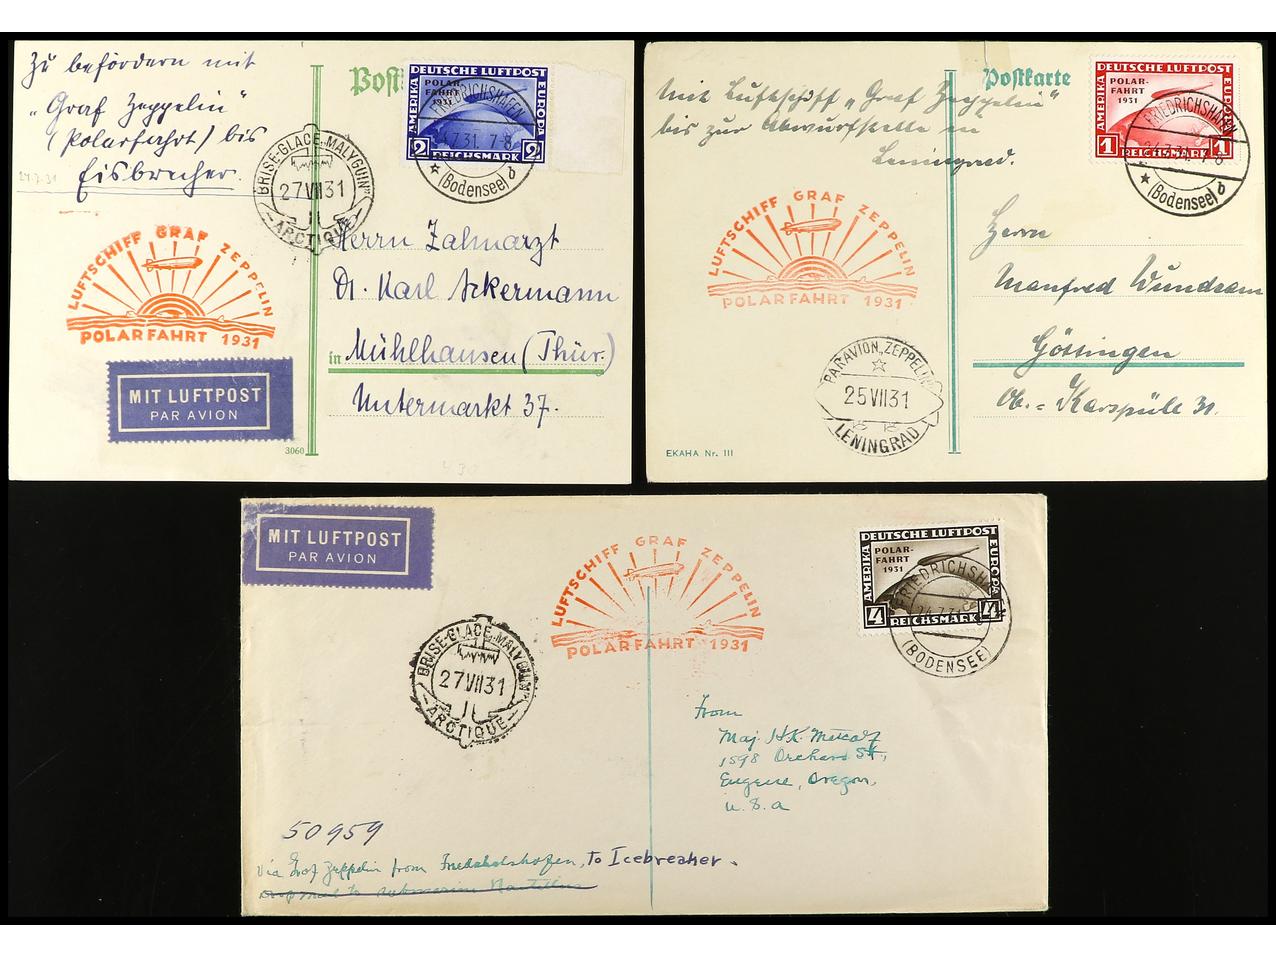 Zu befördern mit
"Graf Zeppelin"
(Polarfahrt) bis
Eisbrecher.
24.7.31
Postk
DEUTSCHE LUFTPOST
AMERIKA
EUROPA
POLAR-
FAHRT
1931
2 REICHSMARK 2
FRIEDRICHSHAFEN
24.7.31. 7-8
(Bodensee) d
BRISE-GLACE „MALYGUIN"
27 VII 31
ARCTIQUE
LUFTSCHIFF GRAF ZEPPELIN
POLARFAHRT 1931
MIT LUFTPOST
PAR AVION
Herrn Zahnarzt
Dr. Karl Ackermann
in Mühlhausen (Thür.)
Untermarkt 37.
3060
Mit Luftschiff „Graf Zeppelin"
bis zur Abwurfstelle in
Leningrad.
Postkarte
DEUTSCHE LUFTPOST
AMERIKA
EUROPA
POLAR-
FAHRT
1931
1 REICHSMARK 1
FRIEDRICHSHAFEN
24.7.31. 7-8
(Bodensee) d
LUFTSCHIFF GRAF ZEPPELIN
POLARFAHRT 1931
Herrn
Manfred Wundram
Göttingen
Ob.-Karspüle 31.
PAR AVION „ZEPPELIN"
25 VII 31
LENINGRAD
EKAHA Nr. III
MIT LUFTPOST
PAR AVION
LUFTSCHIFF GRAF ZEPPELIN
POLARFAHRT 1931
DEUTSCHE LUFTPOST
AMERIKA
EUROPA
POLAR-
FAHRT
1931
4 REICHSMARK 4
FRIEDRICHSHAFEN
24.7.31
(BODENSEE)
BRISE-GLACE „MALYGUIN"
27 VII 31
ARCTIQUE
From
Maj. H.K. Metcalf
1598 Orchard St,
Eugene, Oregon,
U.S.A
50959
Via Graf Zeppelin from Friedrichshofen, to Icebreaker.
Drop mail to submarine Nautilus